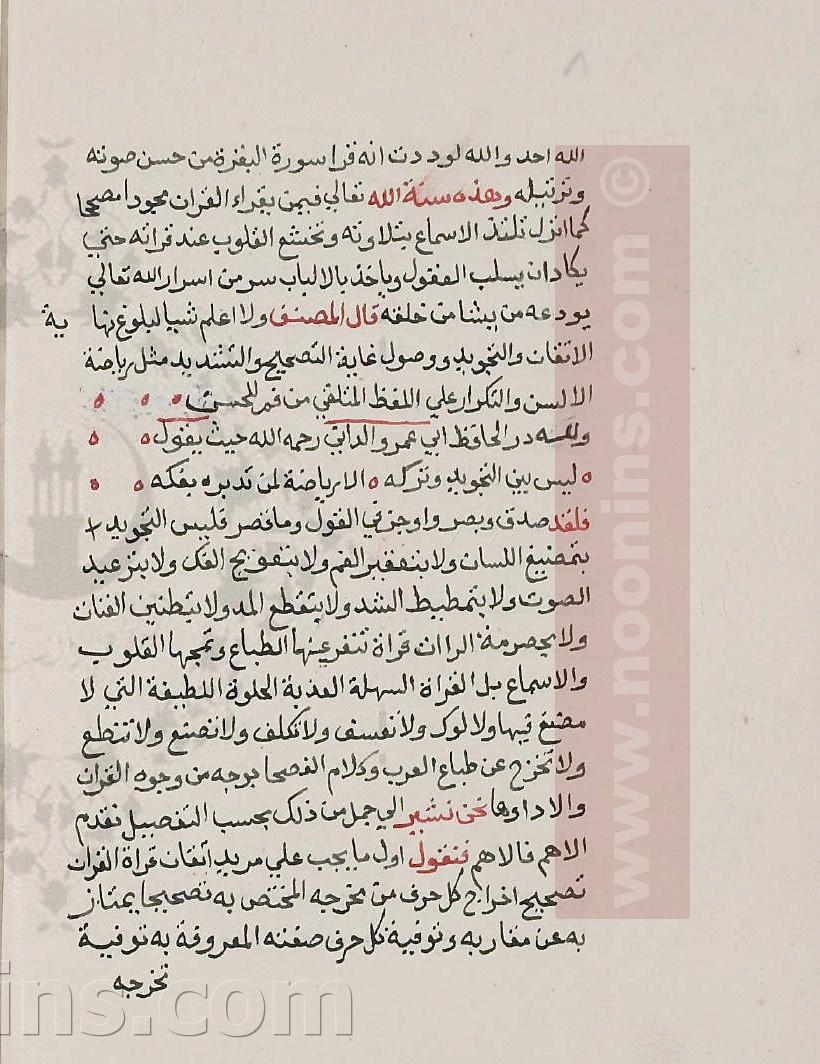 ٨
الله احد والله لوددت انه قرا سورة البقرة من حسن صوته
وترتيله وهذه سنة الله تعالي فيمن يقراء القران مجودا مصححا
كما انزل تلتذ الاسماع بتلاوته وتخشع القلوب عند قراته حتي
يكاد ان يسلب العقول وياخذ بالالباب سر من اسرار الله تعالي
يودعه من يشا من خلقه قال المصنف ولا اعلم شيا لبلوغ نهاية
الاتقان والتجويد ووصول غاية التصحيح والتشديد مثل رياضة
الالسن والتكرار علي اللفظ المتلقي من فم المحسن
ولله در الحافظ ابي عمرو الداني رحمه الله حيث يقول
ليس بين التجويد وتركه الا رياضة لمن تدبره بفكه
فلقد صدق وبصر واوجز في القول وما قصر فليس التجويد
بتمضيغ اللسان ولا بتقعير الفم ولا بتعويج الفك ولا بترعيد
الصوت ولا بتمطيط الشد ولا بتقطيع المد ولا بتطنين الغنات
ولا بحصرمة الراات قراة تنفر عنها الطباع وتمجها القلوب
والاسماع بل القراة السهلة العذبة الحلوة اللطيفة التي لا
مضغ فيها ولا لوك ولا تعسف ولا تكلف ولا تصنع ولا تنطع
ولا تخرج عن طباع العرب وكلام الفصحا بوجه من وجوه القران
والادا وها نحن نشير الي جمل من ذلك بحسب التفصيل نقدم
الاهم فالاهم فنقول اول ما يجب علي مريد اتقان قراة القران
تصحيح اخراج كل حرف من مخرجه المختص به تصحيحا يمتاز
به عن مقاربه وتوفية كل حرف صفته المعروفة به توفية
تخرجه
www.noonins.com ©
ins.com